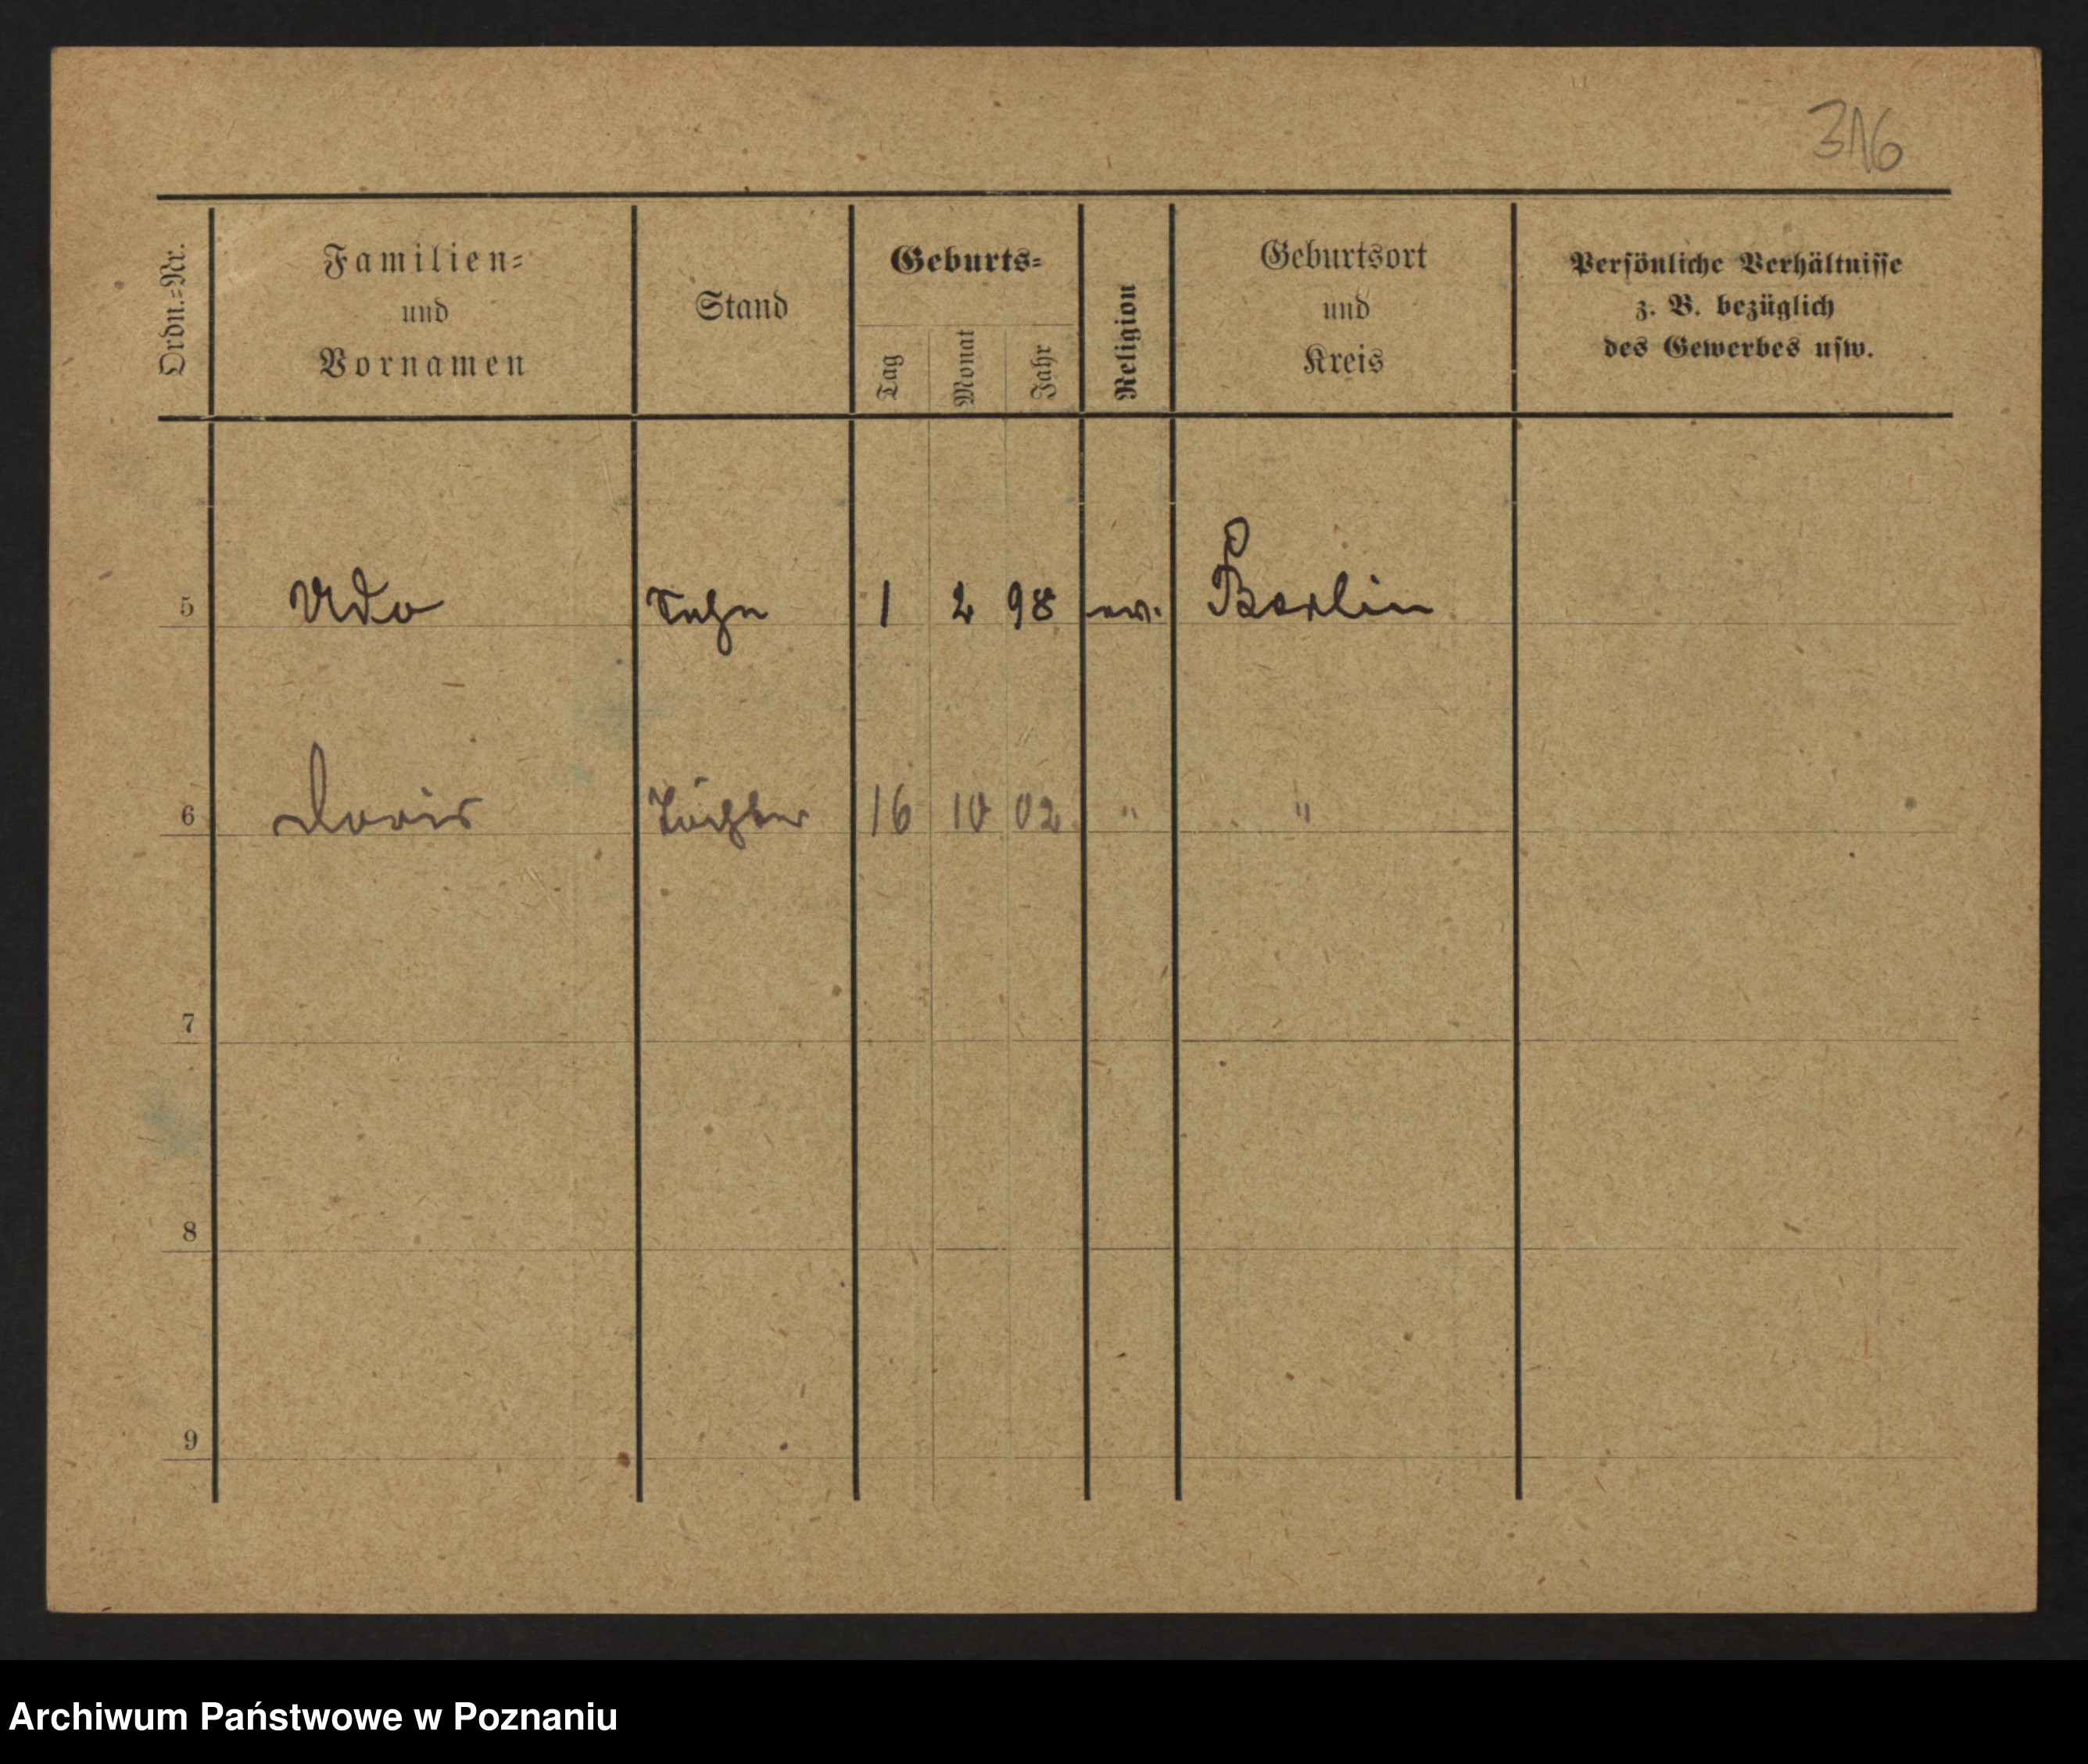 316
Ordn.=Nr.
Familien=
und
Vornamen
Stand
Geburts=
Tag
Monat
Jahr
Religion
Geburtsort
und
Kreis
Persönliche Verhältnisse
z. B. bezüglich
des Gewerbes usw.
5 Udo Sohn 1 2 98 ev. Berlin
6 Doris Tochter 16 10 02 " "
7
8
9
Archiwum Państwowe w Poznaniu